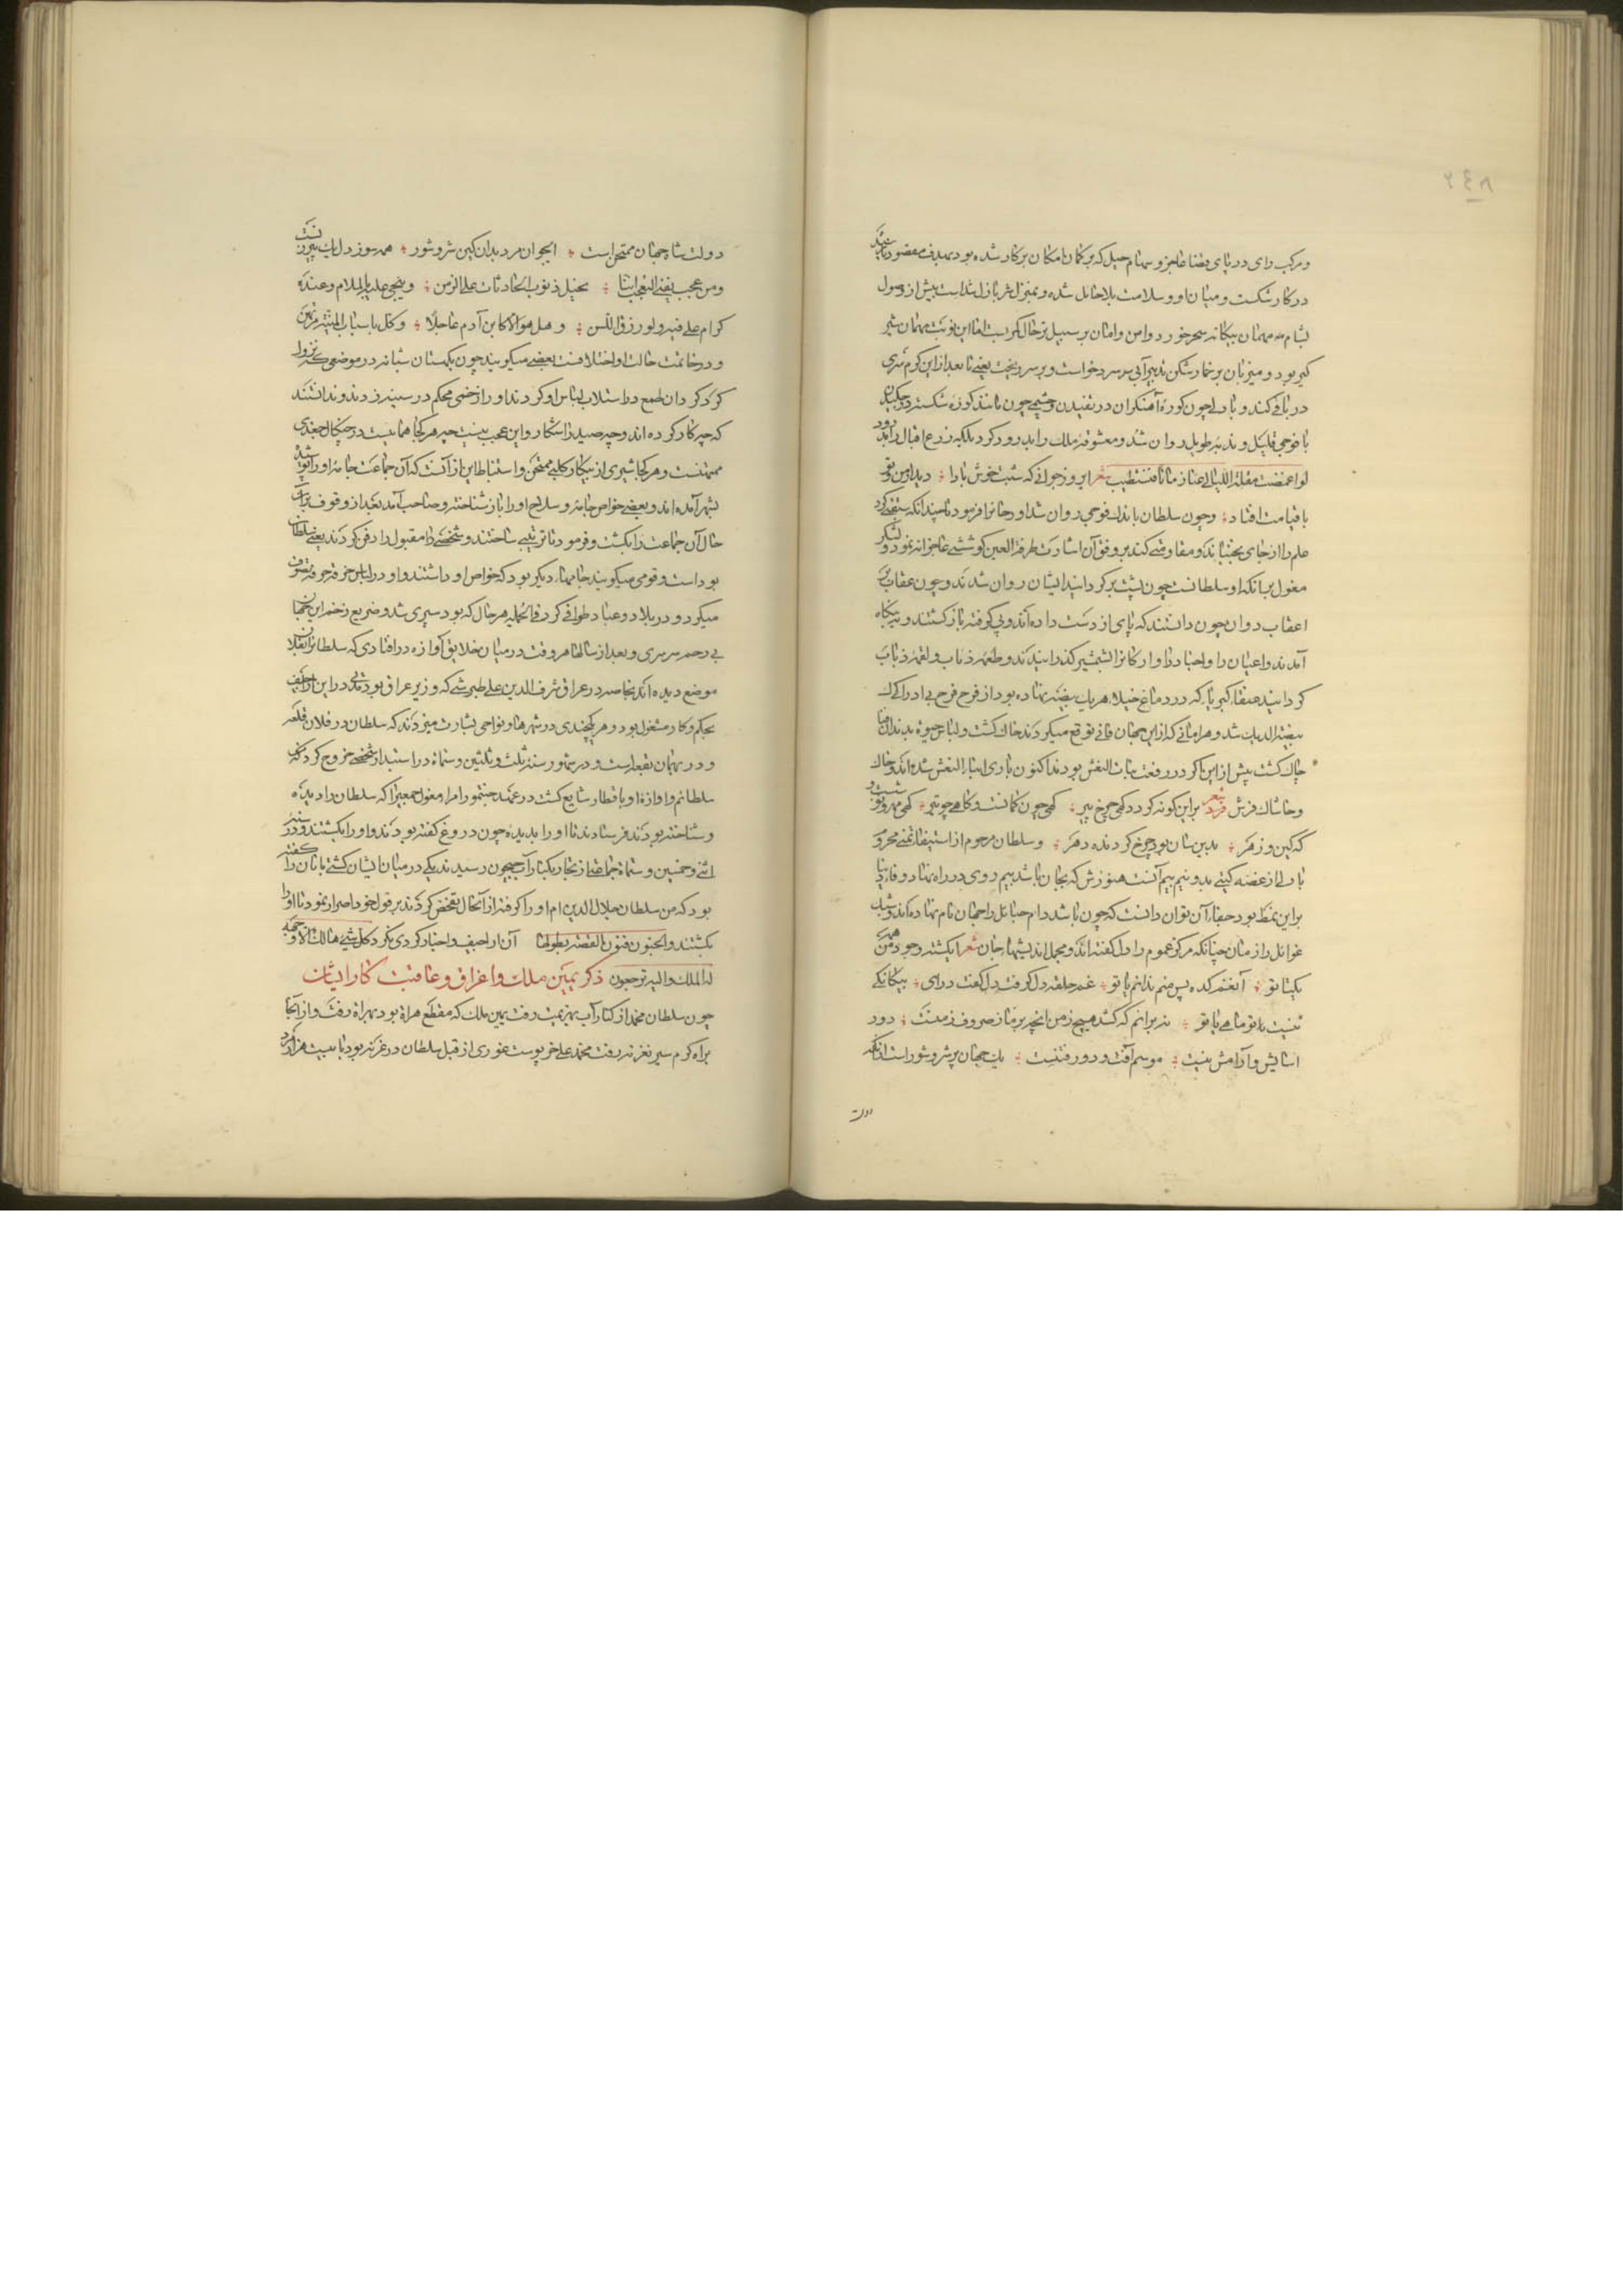 ۲۴۸
و مرکب رای در پای قضا عاجز و سهام حیل که بر کمان امکان بر کار شده بود بهدف مقصود
در کار شکست و میان او و سلامت بلا حایل شده و بمنزل شریازل شداست پیش از وصول
بشام مهمان بیکانه سحر خورد و امن و امان بر سبیل ترحال کریست اما این نوبت مهمان شیر
کیر بود و میزبان بر خمار شکن تدبیر آبی بر سر درخواست و بر سر ریخت یعنی تا بعد ازین کرم تری
در باقی کند و با دلی چون کوره آهنکران در تفیدن و چشمی چون مانند کوزه شکسته در چکیدن
با فوجی قلیل و ندبه طویل روان شد و معشوقه ملک را بدرود کرد بلکه زرع اقبال را
لو اغمضت مقلة اللیالی عنا زمانا فنستطیب شعر ای روز جوانی که شبت خوش بادا
با قیامت افتاد وچون سلطان با اندک فوجی روان شد اورخانرا فرمود تا چندانکه
علم را از جای بجنباند و مقاومتی کند بر وفق آن اشارت طرفة العین کوششی عاجزانه نمود و لشکر
مغول بر آنکه او سلطانست چون پشت بر کردانید ایشان روان شدند و چون عقاب بر
اعقاب دوان چون دانستند که پای از دست داده اند و پی کوفته باز کشتند و بیکاه
آمدند و اعیان را و اجناد را و ارکانرا بشمشیر کذرانیدند و طعمه ذئاب و لقمه ذباب
کردانیدند عنقاء کبریا که در دماغ خیلاء هر یک بیضه نهاده بود از فرخ فرح بی ادراک
بیضة الدیک شد و هر امانی که ازین جهان فانی توقع میکردند خاک کشت و لباس حیوة بدندان
چاک کشت پیش ازین اکر در رفعت بنات النعش بودند اکنون باری ابناء النعش شده اند و خاک
و خاشاک فرش فرد شعر براین کونه کردد کهی چرخ پیر کهی چون کمانست و کاهی چو تیر کهی مهر و نوش
که کین و زهر بدین سان بود چرخ کردنده دهر و سلطان مرحوم از استیفا تمنی محروم
با دلی از غصه کیتی بدو نیم بیم آنست هنوزش که بجان باشد بیم روی در راه نهاد
براین نمط بود حقا آن توان دانست که چون باشد دام حبایل را جهان نام نهاده اند و شبک
غوایل را زمان چنانکه مرکز غموم را دل کفته اند و محل اندیشها جان شعر ایکشته وجود من
یکتا تو آنغم کده پس منم ندانم یا تو غم حلقه دل کرفت دل کفت درای بیکانکیی
نیست تو مائی یا تو نه برانم که کشد هیچ زمن انچه بر ما ز صروف زمنست دور
اسایش و آرامش نیست موسم آفت و دور فتنست یک جهان پر شر و شور است
دولت
دولت شاه جهان ممتحن است ایجوان مرد بدان کین شر و شور همه سوز دل یک پیرزنست
ومن عجب یفنی العجب اننا نحیل ذنوب الحادثات علی الزمن وینحی علیه بالملام وعنده
کرام علی فیه ولو رزق اللسن وهل هو الا کابن آدم عاجلا وکل باسباب المنیة مرتهن
و در خاتمت حالت او اختلافست بعضی میکویند چون بکهستان شبانه در موضعی که نزول
کرد کردان طمع در استلاب لباس او کردند او را زخمی محکم در سینه زدند و ندانستند
که چه کار کرده اند و چه صید را شکار و این عجب نیست چه هر کجا هماییست در چنکال جغدی
ممتحنست و هر کجا شیری از پیکار کلبی ممتحن و استنباط این از آنست که آن جماعت جامه او را
بشهر آمده اند و بعضی خواص جامه و سلاح او را باز شناخته و صاحب آمد بعد از وقوف بر آن
حال آن جماعت را بکشت و فرمود تا تربتی ساختند و شخصی را مقتول را دفن کردند یعنی سلطان
بود است و قومی میکویند جامها دیکر بود که خواص او داشتند و او در لباس خرقه تصوف
میکرد و در بلاد و عباد طوافی کرد فی الجمله هر حال که بود سپری شد و ضریع زخم این جهان
بی رحم سرسری و بعد از سالها هر وقت در میان خلایق آوازه در افتادی که سلطان را بفلان
موضع دیده اند بخاصه در عراق شرف الدین علی طبرشی که وزیر عراق بود مدتی در این اراجیف
بحکم و کار مشغول بود و هر یکچندی در شهرها و نواحی بشارت میزدند که سلطان در فلان قلعه
و در بهمان بقعه است و در شهور سنه ثلث و ثلثین و ستمائه در استبدار شخصی خروج کرد که من
سلطانم و آوازه او باقطار شایع کشت در عهد جنتمور امراء مغول جمعیرا که سلطان را دیده
و شناخته بودند فرستادند تا او را بدیده چون دروغ کفته بودند او را بکشتند و در سنه
اثنی وخمسین و ستمائه جماعتی از تجار بکنار آب جیحون رسیدند یکی در میان ایشان کشتی بانان را کفته
بود که من سلطان جلال الدین ام او را کرفته از آنحال تفحص کردند بر قول خود اصرار نمود تا او را
بکشتند والجنون فنون القصة بطولها آن اراجیف و اخبار کردی نکرد کل شیء هالک الا وجهه
له الملک والیه ترجعون ذکر یمین ملک و اغراق و عاقبت کار ایشان
چون سلطان محمد از کنار آب بهزیمت رفت یمین ملک که مقطع هراة بود بهراة رفت و از آنجا
براه کرم سیر بغزنه رفت محمد علی خرپوست غوری از قبل سلطان در غزنه بود با بیست هزار مرد